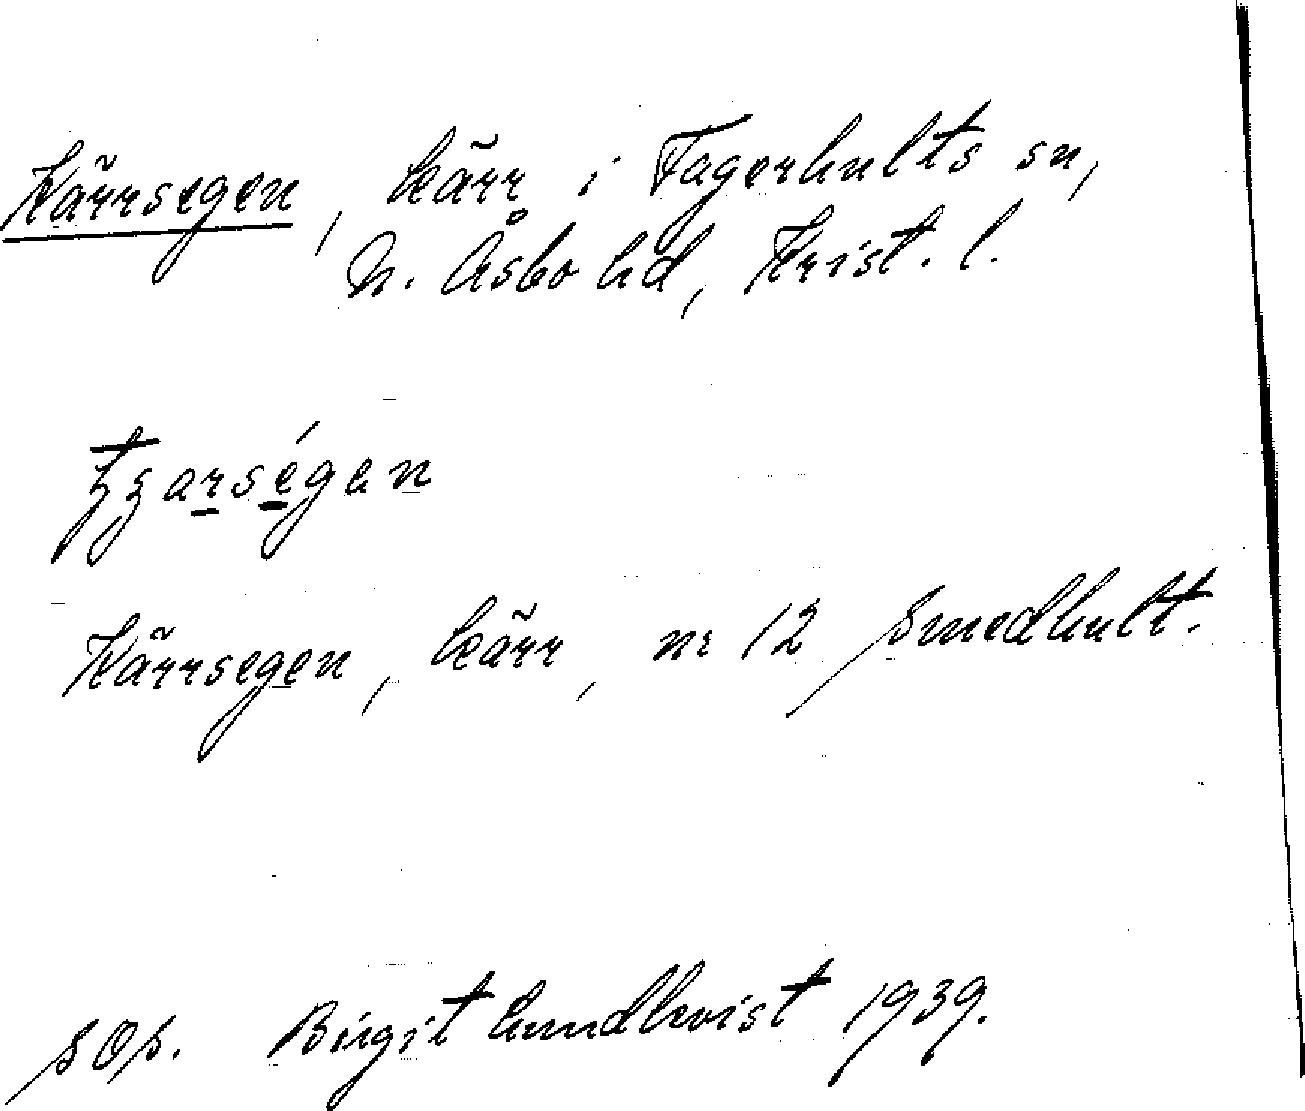 Kärrsegen, kärr i Fagerhults sn,
N. Åsbo hd, Krist. l.
Kärrsegen, kärr, nr 12 Smedhult.
SOS. Birgit Lundkvist 1939.